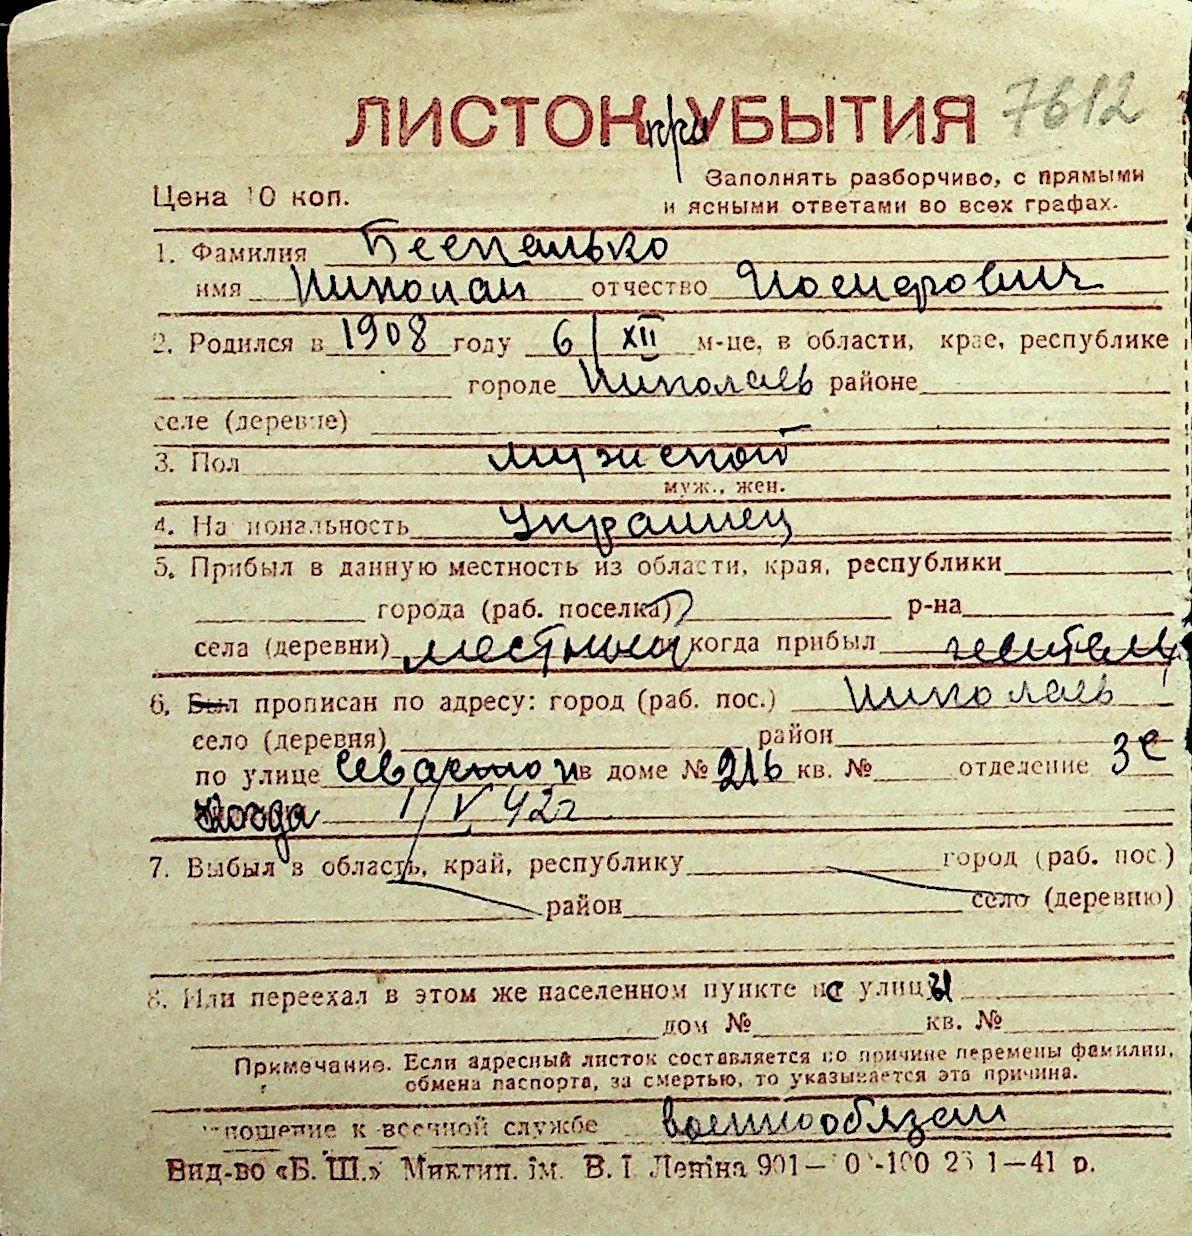 ЛИСТОК приУБЫТИЯ 7612
Цена 10 коп.
Заполнять разборчиво, с прямыми
и ясными ответами во всех графах.
1. Фамилия Беспалько
имя Николай отчество Иосифович
2. Родился в 1908 году 6/XII м-це, в области, крае, республике
городе Николаев районе
селе (деревне)
3. Пол мужской
муж., жен.
4. Национальность Украинец
5. Прибыл в данную местность из области, края, республики
города (раб. поселка) р-на
села (деревни) местный когда прибыл житель
6. Был прописан по адресу: город (раб. пос.) Николаев
село (деревня) район
по улице Севастоп в доме № 21б кв. № отделение 3е
Когда 1/V 42г
7. Выбыл в область, край, республику город (раб. пос.)
район село (деревню)
8. Или переехал в этом же населенном пункте с улицы
дом № кв. №
Примечание. Если адресный листок составляется по причине перемены фамилии,
обмена паспорта, за смертью, то указывается эта причина.
отношение к военной службе военнообязан
Вид-во «Б. Ш.» Миктип. ім. В. І. Леніна 901— 1—41 р.